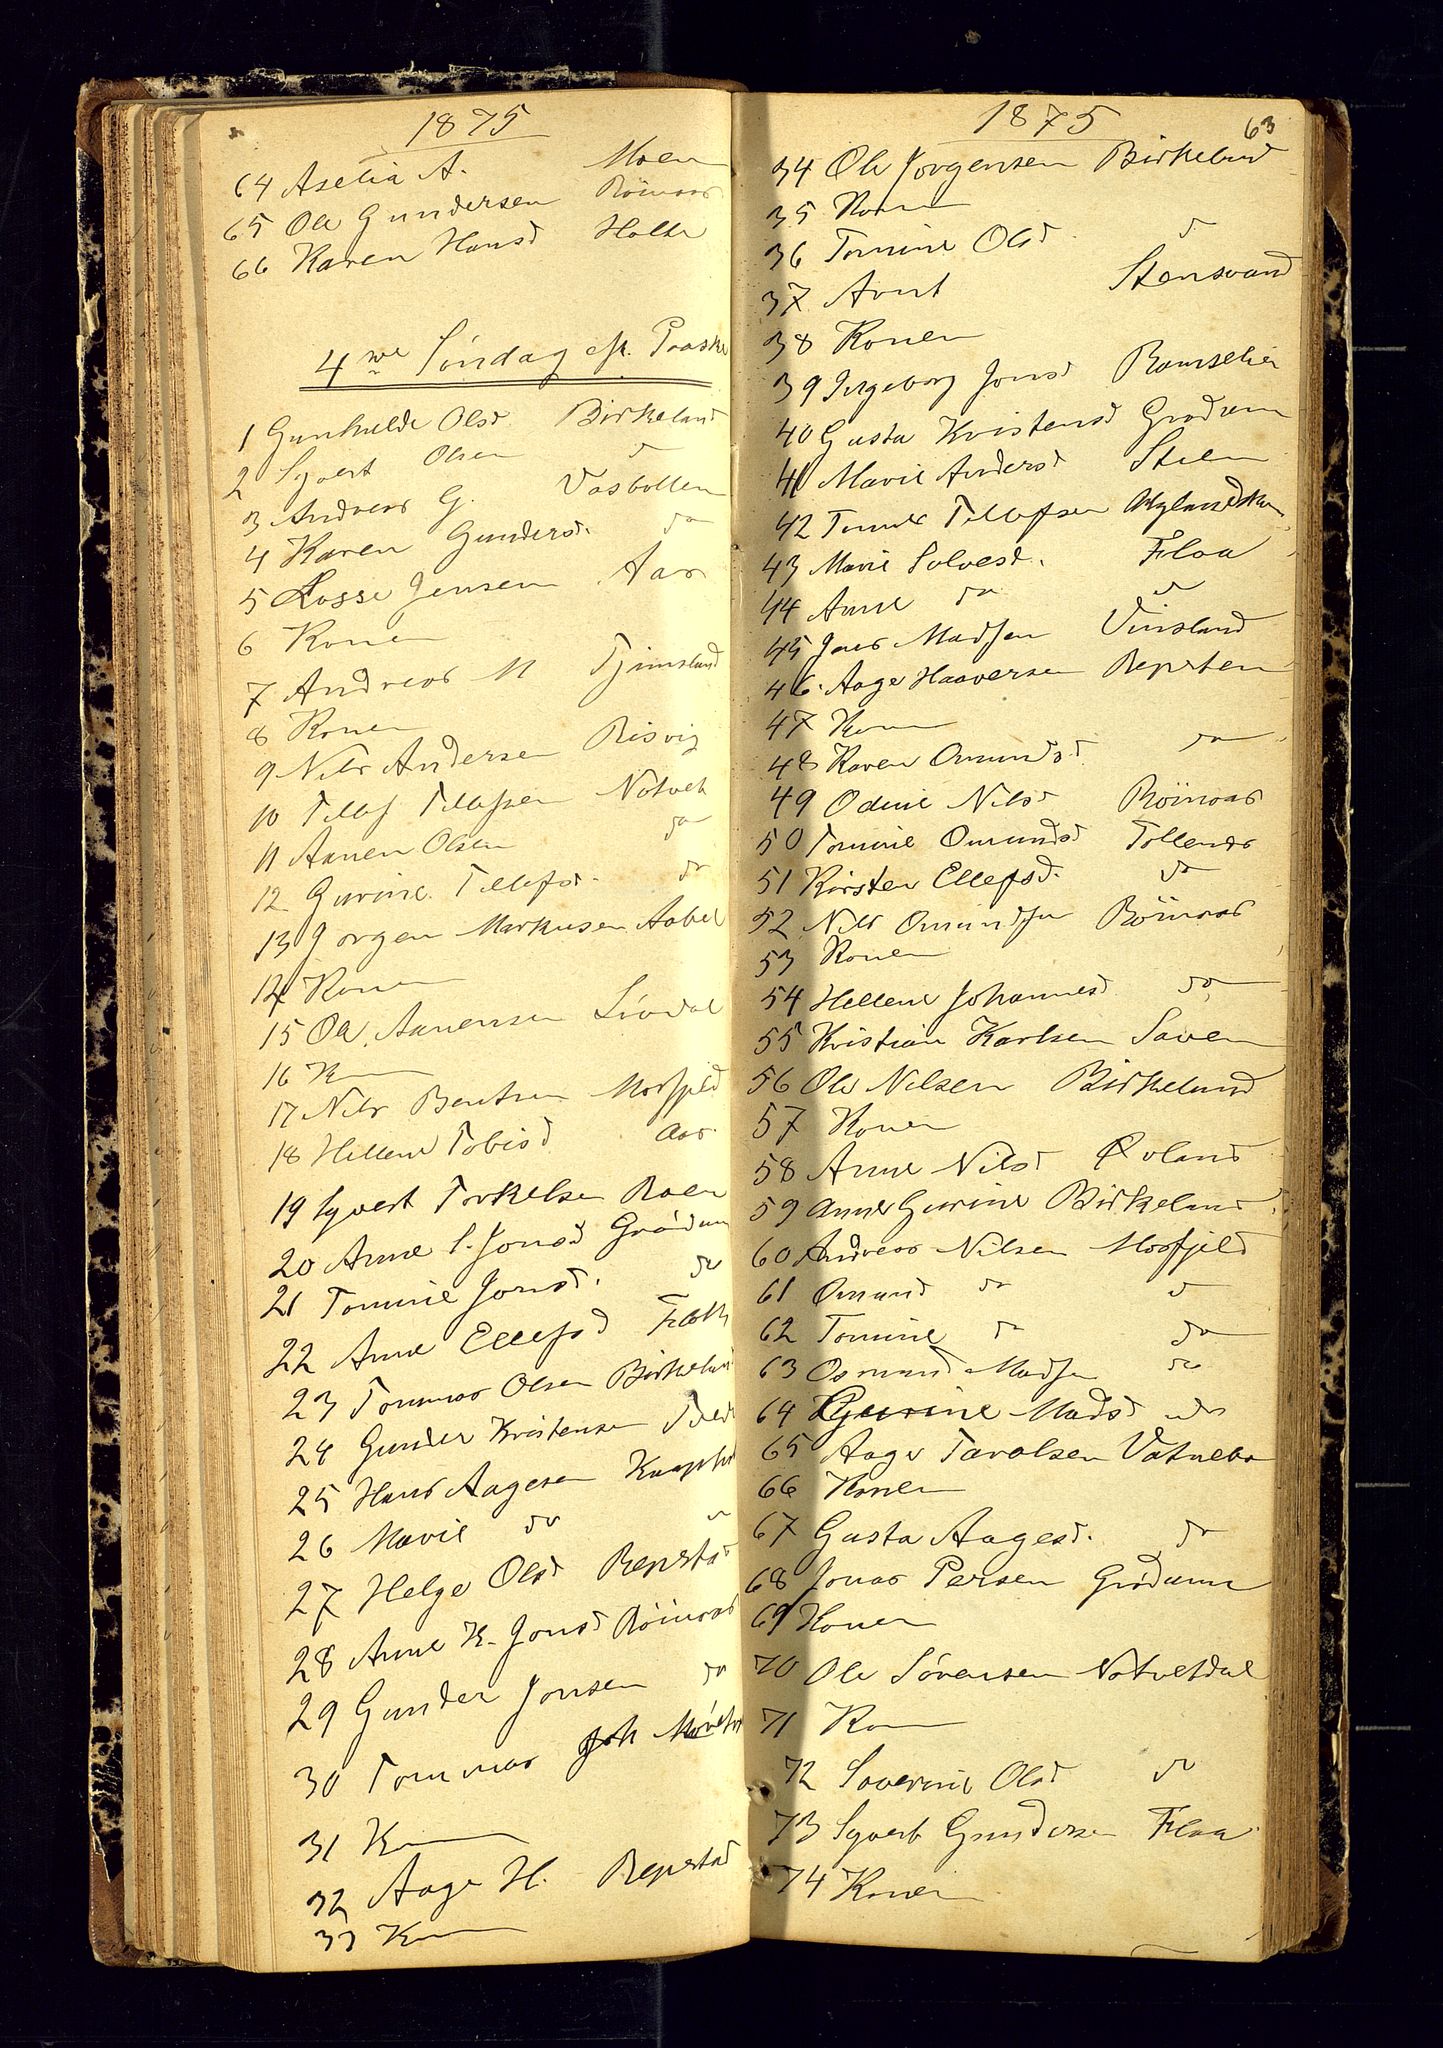 1875
64 Aselia A. Moen
65 Ole Gundersen Röinaas
66 Karen Hansd Holte
4de Söndag eft. Paaske
1 Gunhilde Olsd Birkeland
2 Syvert Olsen do
3 Andreas G. Vasbotten
4 Karen Gundersd. do
5 Lasse Jensen Aas
6 Konen
7 Andreas M Tjimsland
8 Konen
9 Nils Andersen Risvig
10 Tellef Tellefsen Nötvet
11 Aanen Olsen do
12 Gurine Tellefsd. do
13 Jorgen Markusen Aabel
14 Konen
15 Ole Aanensen Liodal
16 Konen
17 Nils Bentsen Mosfjeld
18 Hellene Tobisd Aas
19 Syvert Torkelsen Roen
20 Anne S. Jonsd Gródum
21 Tomine Jonsd. do
22 Anne Ellefsd
23 Tommas Olsen Birkeland
24 Gunder Kristensen
25 Hans Aagesen
26 Marie do do
27 Helge Olsd Repstad
28 Anne K. Jonsd Röinaas
29 Gunder Jonsen do
30 Tommas Joh
31 Konen
32 Aage H. Repstad
33 Konen
1875 63
34 Ole Jorgensen Birkeland
35 Konen
36 Tomine Olsd do
37 Arnt Stensvand
38 Konen
39 Ingeborg Jonsd Ramselien
40 Gusta Kristensd Grodum
41 Marie Andersd Steen
42 Tellefsen
43 Marie Solvesd. Flaa
44 Anne do do
45 Jens Madsen Vinsland
46 Aage Haaversen Repsten
47 Konen
48 Karen Omundsd. do
49 Odine Nilsd Röinaas
50 Tomine Omundsd Tollenes
51 Kirsten Ellefsd. do
52 Nils Omundsen Röinaas
53 Konen
54 Hellene Johannesd do
55 Kristian Karlsen Saven
56 Ole Nilsen Birkeland
57 Konen
58 Anne Nilsd Øvland
59 Anne Gurine Birkeland
60 Andreas Nilsen Mosfjeld
61 Omund do do
62 Tomine do do
63 Osmund Madsen do
64 Gurine Madsd do
65 Aage Tarolsen Vatnebo
66 Konen
67 Gusta Aagesd. do
68 Jonas Persen Grödum
69 Konen
70 Ole Sörensen Nötvetdal
71 Konen
72 Saverine Olsd do
73 Syvert Gundersen Flaa
74 Konen